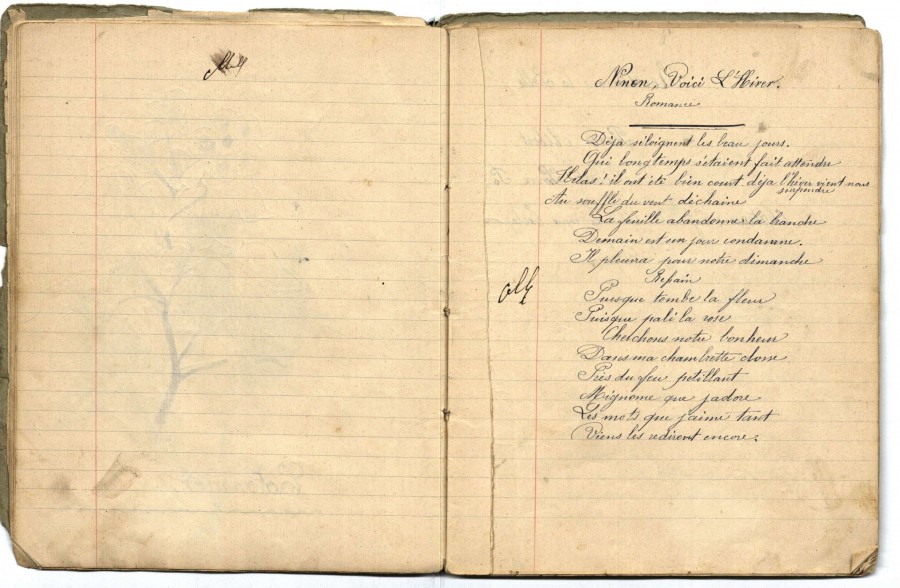 Ninon, Voici L'Hiver.
Romance
Déja séloignent les beau jours.
Qui longtemps s'étaient fait attendre
Hélas! il ont été bien court déja l'hiver vient nous
surprendre
Au souffle du vent déchainé
La feuille abandonne la branche
Demain est un jour condamne.
Il pleuvra pour notre dimanche
Refrain
Puisque tombe la fleur
Puisque pali la rose
Cherchons notre bonheur
Dans ma chambrette close
Près du feu petillant
Mignonne que jadore
Les mots que j'aime tant
Viens les rediront encore.